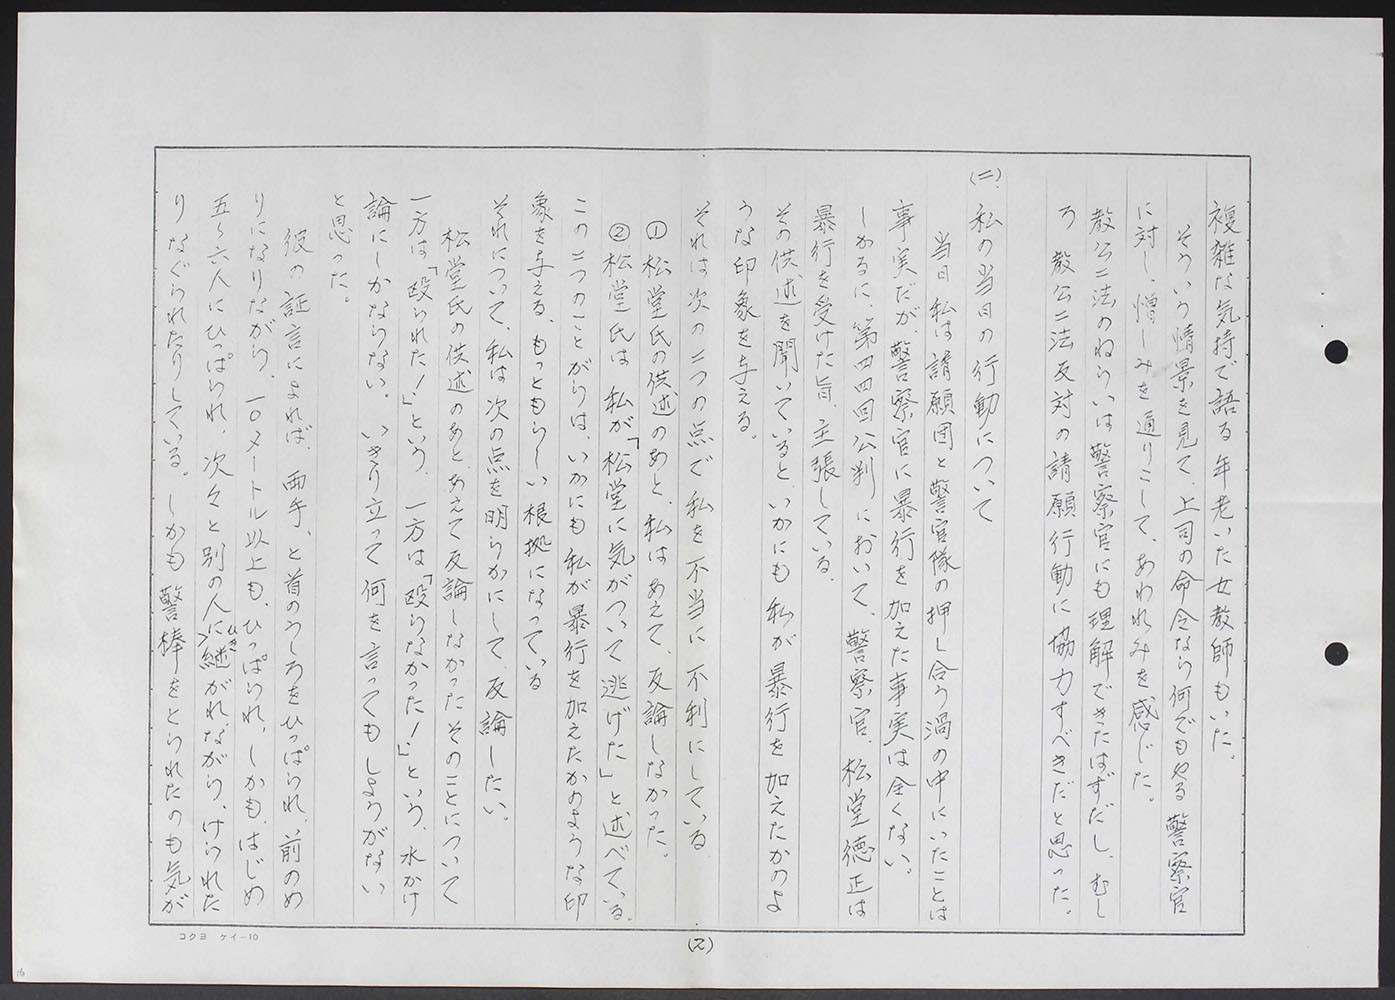 複雑な気持で語る年老いた女教師もいた。
そういう情景を見て、上司の命令なら何でもやる警察官
に対し、憎しみを通りこして、あわれみを感じた。
教公二法のねらいは警察官にも理解できたはずだし、むし
ろ教公二法反対の請願行動に協力すべきだと思った。
(二)、私の当日の行動について
当日私は請願団と警官隊の押し合う渦の中にいたことは
事実だが、警察官に暴行を加えた事実は全くない。
しかるに、第四四回公判において、警察官、松堂徳正は
暴行を受けた旨、主張している。
その供述を聞いていると、いかにも私が暴行を加えたかのよ
うな印象を与える。
それは次の二つの点で私を不当に不利にしている。
①松堂氏の供述のあと、私はあえて、反論しなかった。
②松堂氏は私が「松堂に気がついて逃げた」と述べている。
この二つのことがらは、いかにも私が暴行を加えたかのような印
象を与える、もっともらしい根拠になっている
それについて、私は次の点を明らかにして、反論したい。
松堂氏の供述のあと、あえて反論しなかったそのことについて
一方は「殴られた!」という、一方は「殴らなかった!」という、水かけ
論にしかならない。いきり立って何を言ってもしようがない
と思った。
彼の証言によれば、両手、と首のうしろをひっぱられ、前のめ
りになりながら、一〇メートル以上も、ひっぱられ、しかも、はじめ
五〜六人にひっぱられ、次々と別の人に引き継がれながら、けられた
りなぐられたりしている。しかも警棒をとられたのも気が
(2)
コクヨ ケイ-10
16